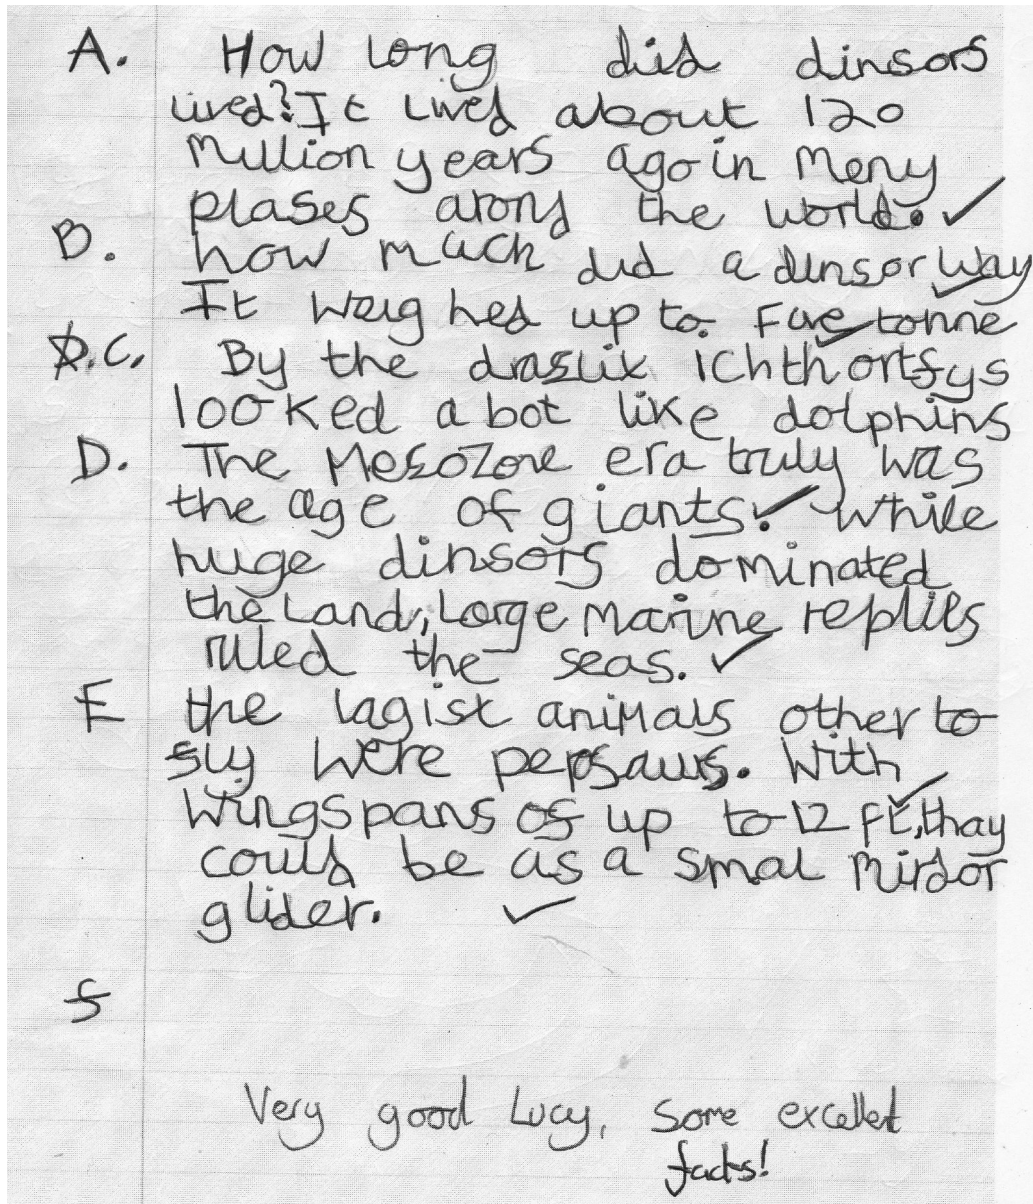 A. How long did dinsors
lived? It lived about 120
Million years ago in Meny
plases arong the world.
B. how much did a dinsor way
It weighed up to. Five tonne
C. By the drasix ichthortsys
looked a bot like dolphins
D. The Mesozore era truly was
the age of giants. While
huge dinsors dominated
the Land, Large Marine reptils
ruled the seas.
E the lagist animals other to
sly were pepsaurs. With
wingspans of up to 12 ft, thay
could be as a smal Mirdor
glider.
f
Very good Lucy, some excellent
facts!